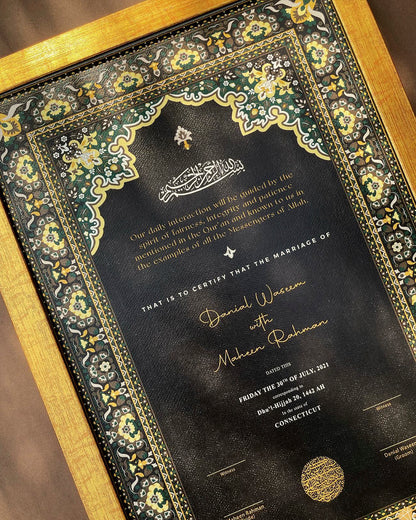 بسم الله الرحمن الرحيم
Our daily interaction will be guided by the
spirit of fairness, integrity and patience
mentioned in the Qur'an and known to us in
the examples of all the Messengers of Allah.
THAT IS TO CERTIFY THAT THE MARRIAGE OF
Danial Waseem
with
Maheen Rahman
DATED THIS
FRIDAY THE 30TH OF JULY, 2021
corresponding to
Dhu'l-Hijjah 20, 1442 AH
In the state of
CONNECTICUT
Witness
Witness
Rahman
Danial Waseem
(Groom)
Witness